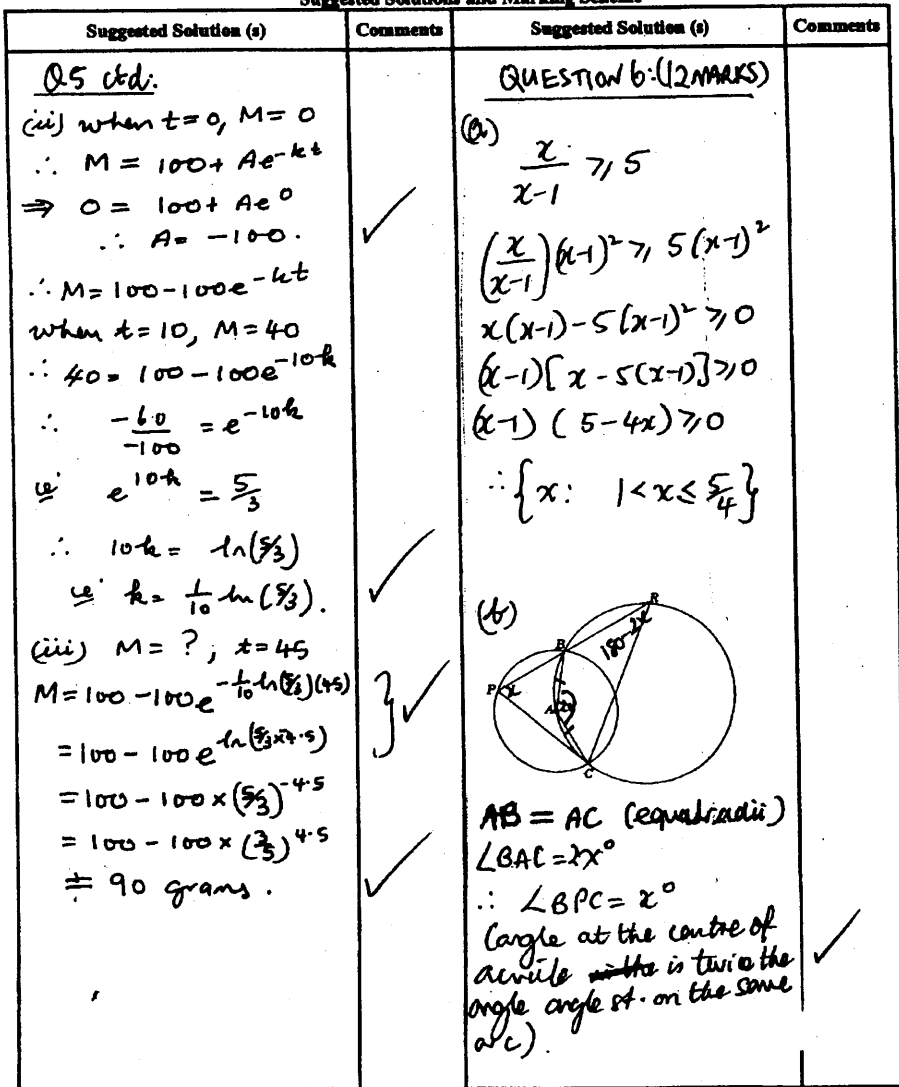 Suggested Solutions and Marking Scheme
Suggested Solution (s)
Comments
Suggested Solution (s)
Comments
Q5 ctd:
(ii) when t=0, M=0
∴ M = 100+ Ae^{-kt}
⇒ 0 = 100+ Ae^0
∴ A= -100. ✓
∴ M= 100-100e^{-kt}
when t=10, M=40
∴ 40= 100-100e^{-10k}
∴ -60/-100 = e^{-10k}
ie e^{10k} = 5/3
∴ 10k = ln(5/3)
ie k= 1/10 ln(5/3). ✓
(iii) M= ?, t=45
M=100-100e^{-1/10 ln(5/3)(45)} } ✓
=100-100e^{ln(5/3 x 4.5)}
=100-100×(5/3)^{-4.5}
=100-100×(3/5)^{4.5}
≑ 90 grams. ✓
QUESTION 6:(12 MARKS)
(a)
x/(x-1) ⩾ 5
(x/(x-1))(x-1)² ⩾ 5(x-1)²
x(x-1)-5(x-1)² ⩾ 0
(x-1)[x-5(x-1)] ⩾ 0
(x-1)(5-4x) ⩾ 0
∴ {x: 1<x≤5/4}
(b)
R
180-2x
B
P
x
A
2x
C
AB = AC (equal radii)
∠BAC=2x°
∴ ∠BPC= x°
(angle at the centre of
a circle is twice the ✓
angle angle st. on the same
arc).